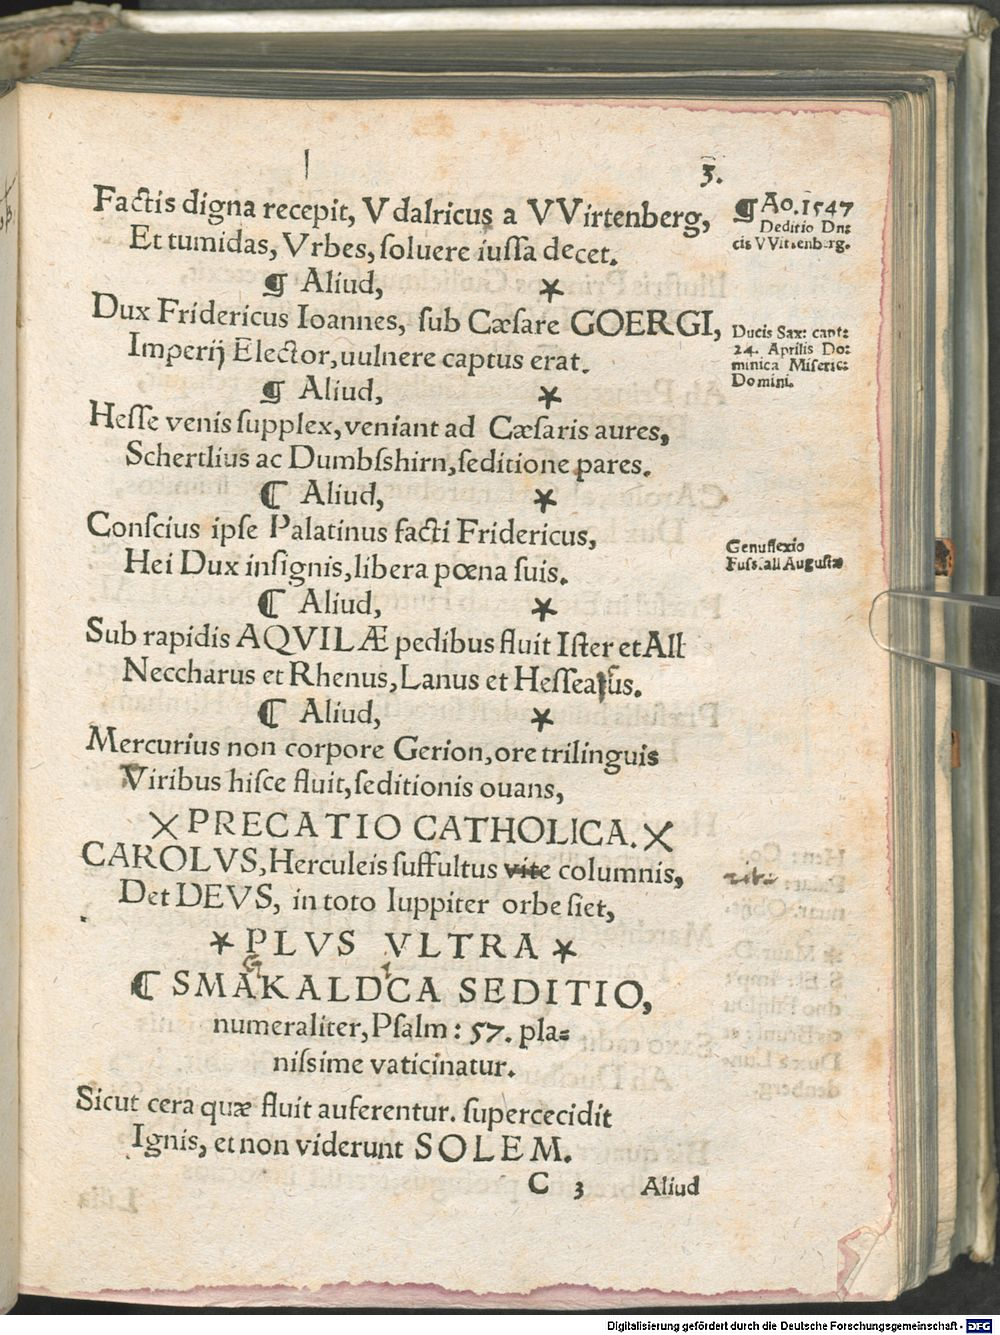 3.
Factis digna recepit, Vdalricus a VVirtenberg,
Et tumidas, Vrbes, ſoluere iuſſa decet.
¶ Aliud, *
Dux Fridericus Ioannes, ſub Cæſare GOERGI,
Imperij Elector, uulnere captus erat.
¶ Aliud, *
Heſſe venis ſupplex, veniant ad Cæſaris aures,
Schertlius ac Dumbſshirn, ſeditione pares.
¶ Aliud, *
Conſcius ipſe Palatinus facti Fridericus,
Hei Dux inſignis, libera pœna ſuis.
¶ Aliud, *
Sub rapidis AQVILÆ pedibus fluit Iſter et All
Neccharus et Rhenus, Lanus et Heſſeaſus.
¶ Aliud, *
Mercurius non corpore Gerion, ore trilinguis
Viribus hiſce fluit, ſeditionis ouans,
X PRECATIO CATHOLICA. X
CAROLVS, Herculeis ſuffultus vite columnis,
Det DEVS, in toto Iuppiter orbe ſiet,
* PLVS VLTRA *
¶ SMAKALDCA SEDITIO,
numeraliter, Pſalm: 57. pla=
niſsime vaticinatur.
Sicut cera quæ fluit auferentur. ſupercecidit
Ignis, et non viderunt SOLEM.
C 3 Aliud
¶ Ao. 1547
Deditio Du=
cis VVirtenberg.
Ducis Sax: capt:
24. Aprilis Do:
minica Miſeric:
Domini.
Genuflexio
Fuſs. all Auguſtæ
Digitalisierung gefördert durch die Deutsche Forschungsgemeinschaft - DFG